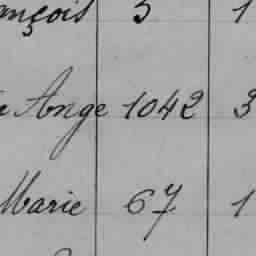 ançois 5 1
Ange 1042 3
Marie 67 1